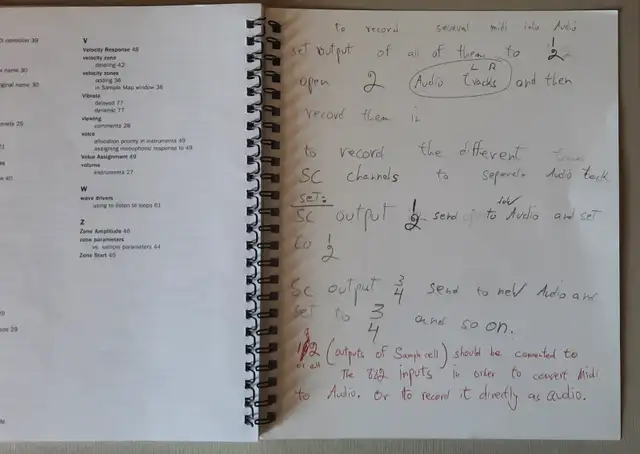 DI controller 39
name 30
original name 30
25
29
V
Velocity Response 48
velocity zone
deleting 42
velocity zones
adding 36
in Sample Map window 36
Vibrato
delayed 77
dynamic 77
viewing
comments 28
voice
allocation priority in instruments 49
assigning monophonic response to 49
Voice Assignment 49
volume
instruments 27
W
wave drivers
using to listen to loops 61
Z
Zone Amplitude 46
zone parameters
vs. sample parameters 44
Zone Start 45
to record several midi into Audio
set output of all of them to 1/2
L R
open 2 Audio tracks and then
record them in
to record the different
SC channels to separate Audio track
set:
SC output 1/2 send to new Audio and set
to 1/2
SC output 3/4 send to new Audio and
set to 3/4 and so on.
1/2 (outputs of Samplecell) should be connected to
or all The 882 inputs in order to convert Midi
to Audio. Or to record it directly as audio.